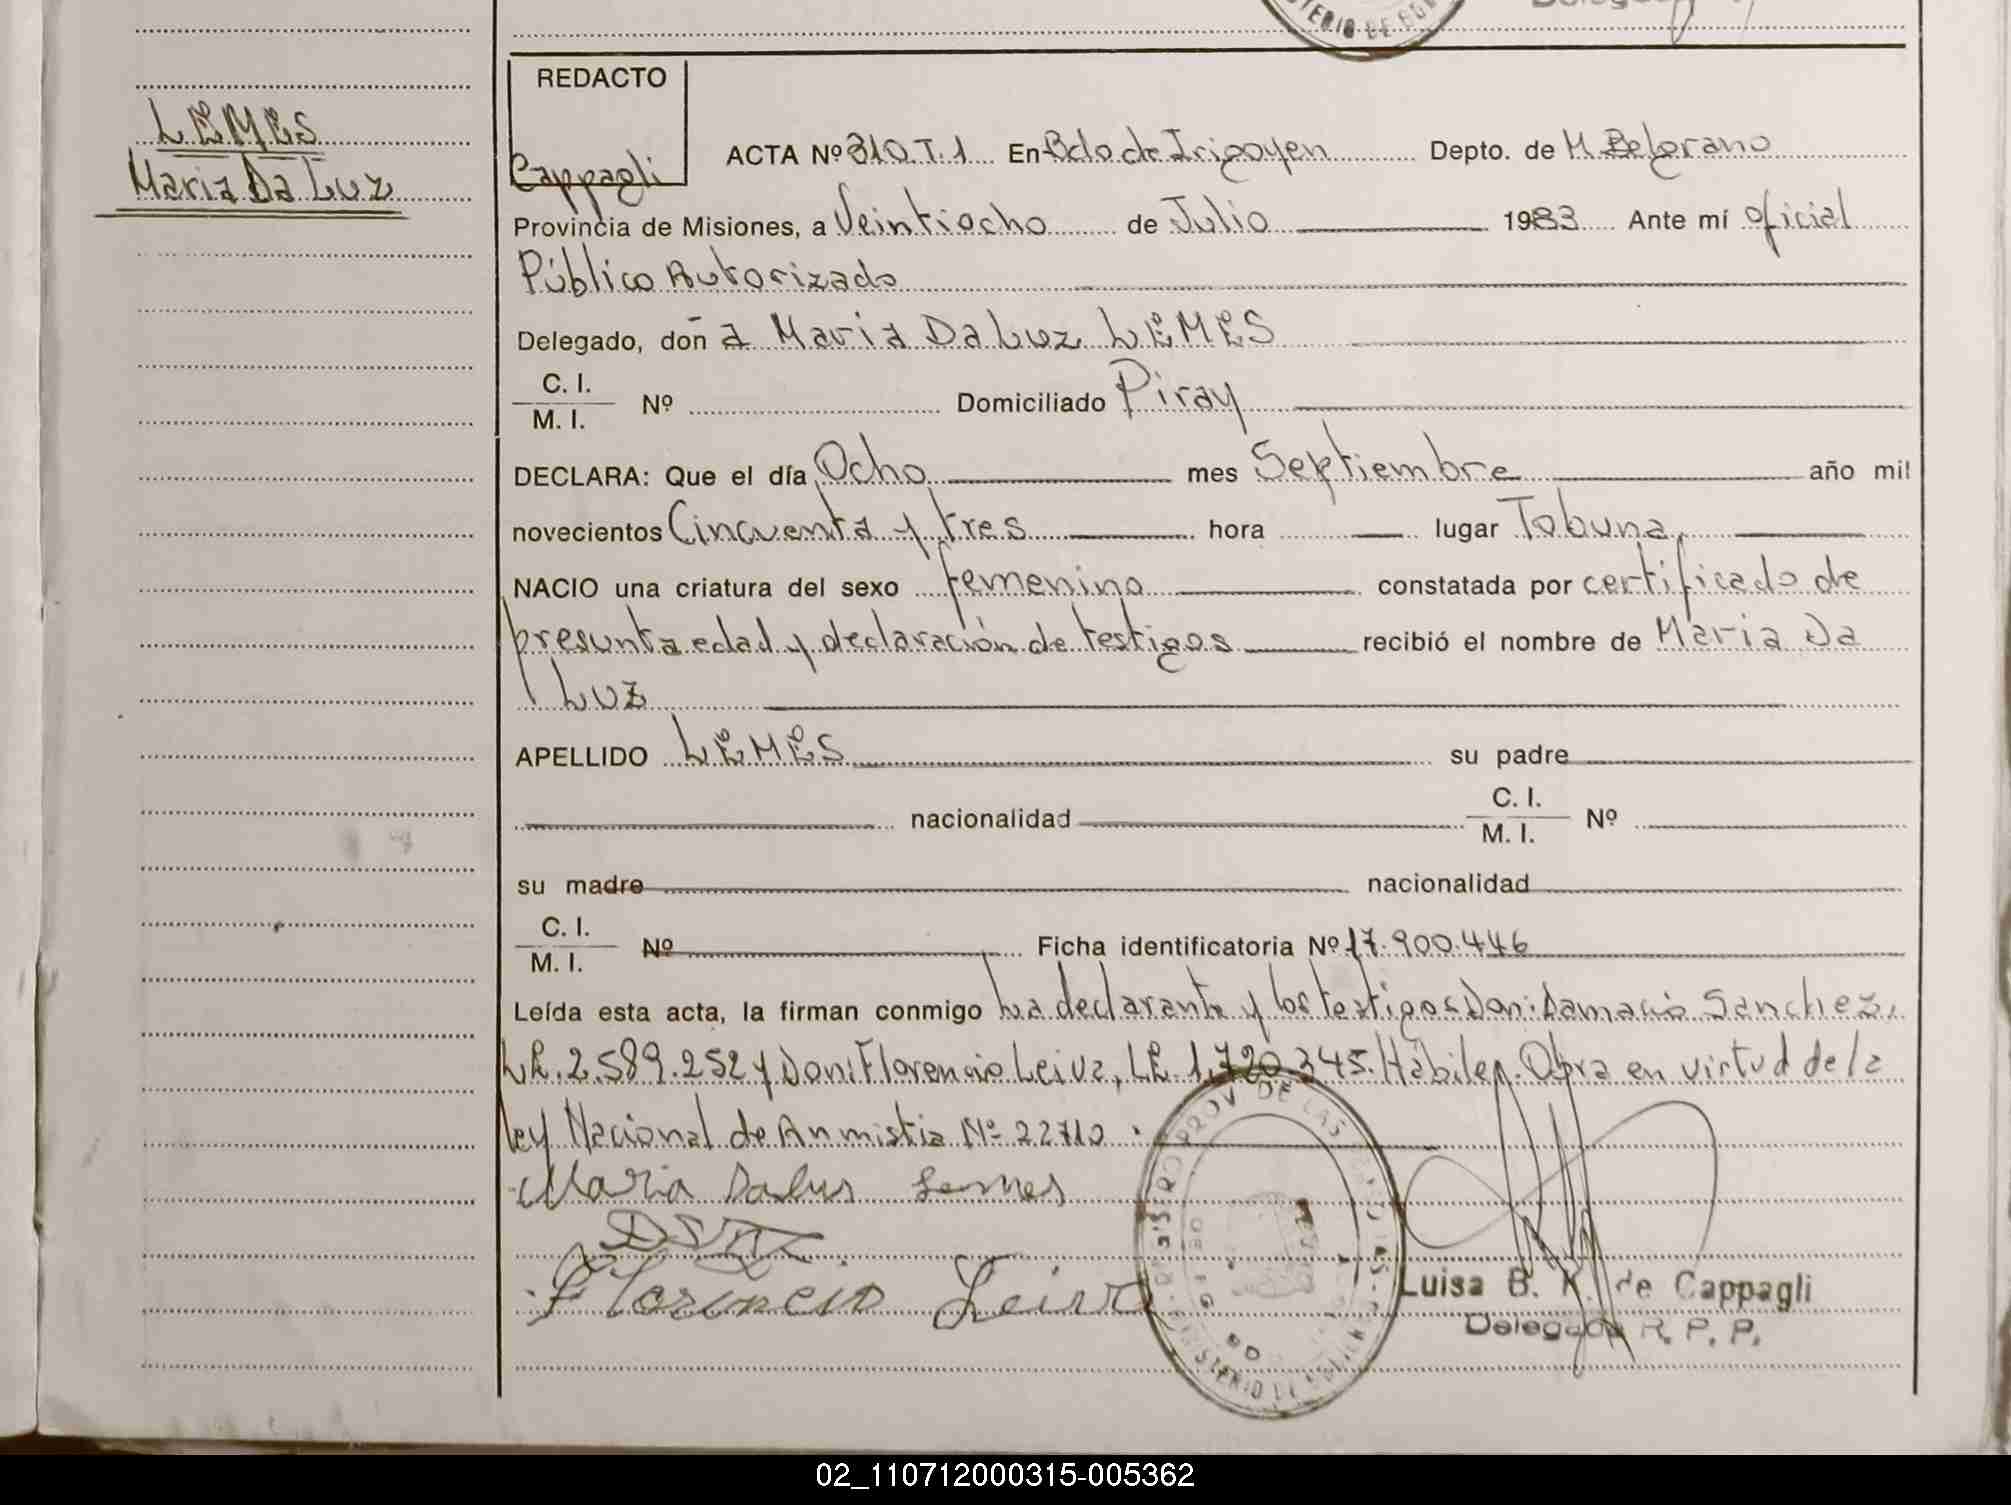 LEMES
Maria Da Luz
REDACTO
Cappagli
ACTA Nº 310.T.1 En Bdo de Irigoyen Depto. de M. Belgrano
Provincia de Misiones, a Veintiocho de Julio 1983 Ante mí oficial
Público Autorizado
Delegado, doña Maria Da Luz LEMES
C. I.
M. I. Nº Domiciliado Piray
DECLARA: Que el día Ocho mes Septiembre año mil
novecientos Cincuenta y tres hora lugar Tobuna,
NACIO una criatura del sexo femenino constatada por certificado de
presunta edad y declaración de testigos recibió el nombre de Maria Da
Luz
APELLIDO LEMES su padre
nacionalidad C. I.
M. I. Nº
su madre nacionalidad
C. I.
M. I. Nº Ficha identificatoria Nº 17.900.446
Leída esta acta, la firman conmigo La declarante y los testigos Don: Damacio Sanchez,
LE. 2.589.252 y Don: Florencio Leiva, LE. 1.720.345. Habiles. Obra en virtud de la
ley Nacional de Anmistia Nº 22710.
Maria Dalus Lemes
Florencio Leiva
Luisa B. K. de Cappagli
Delegada R. P. P.
02_110712000315-005362